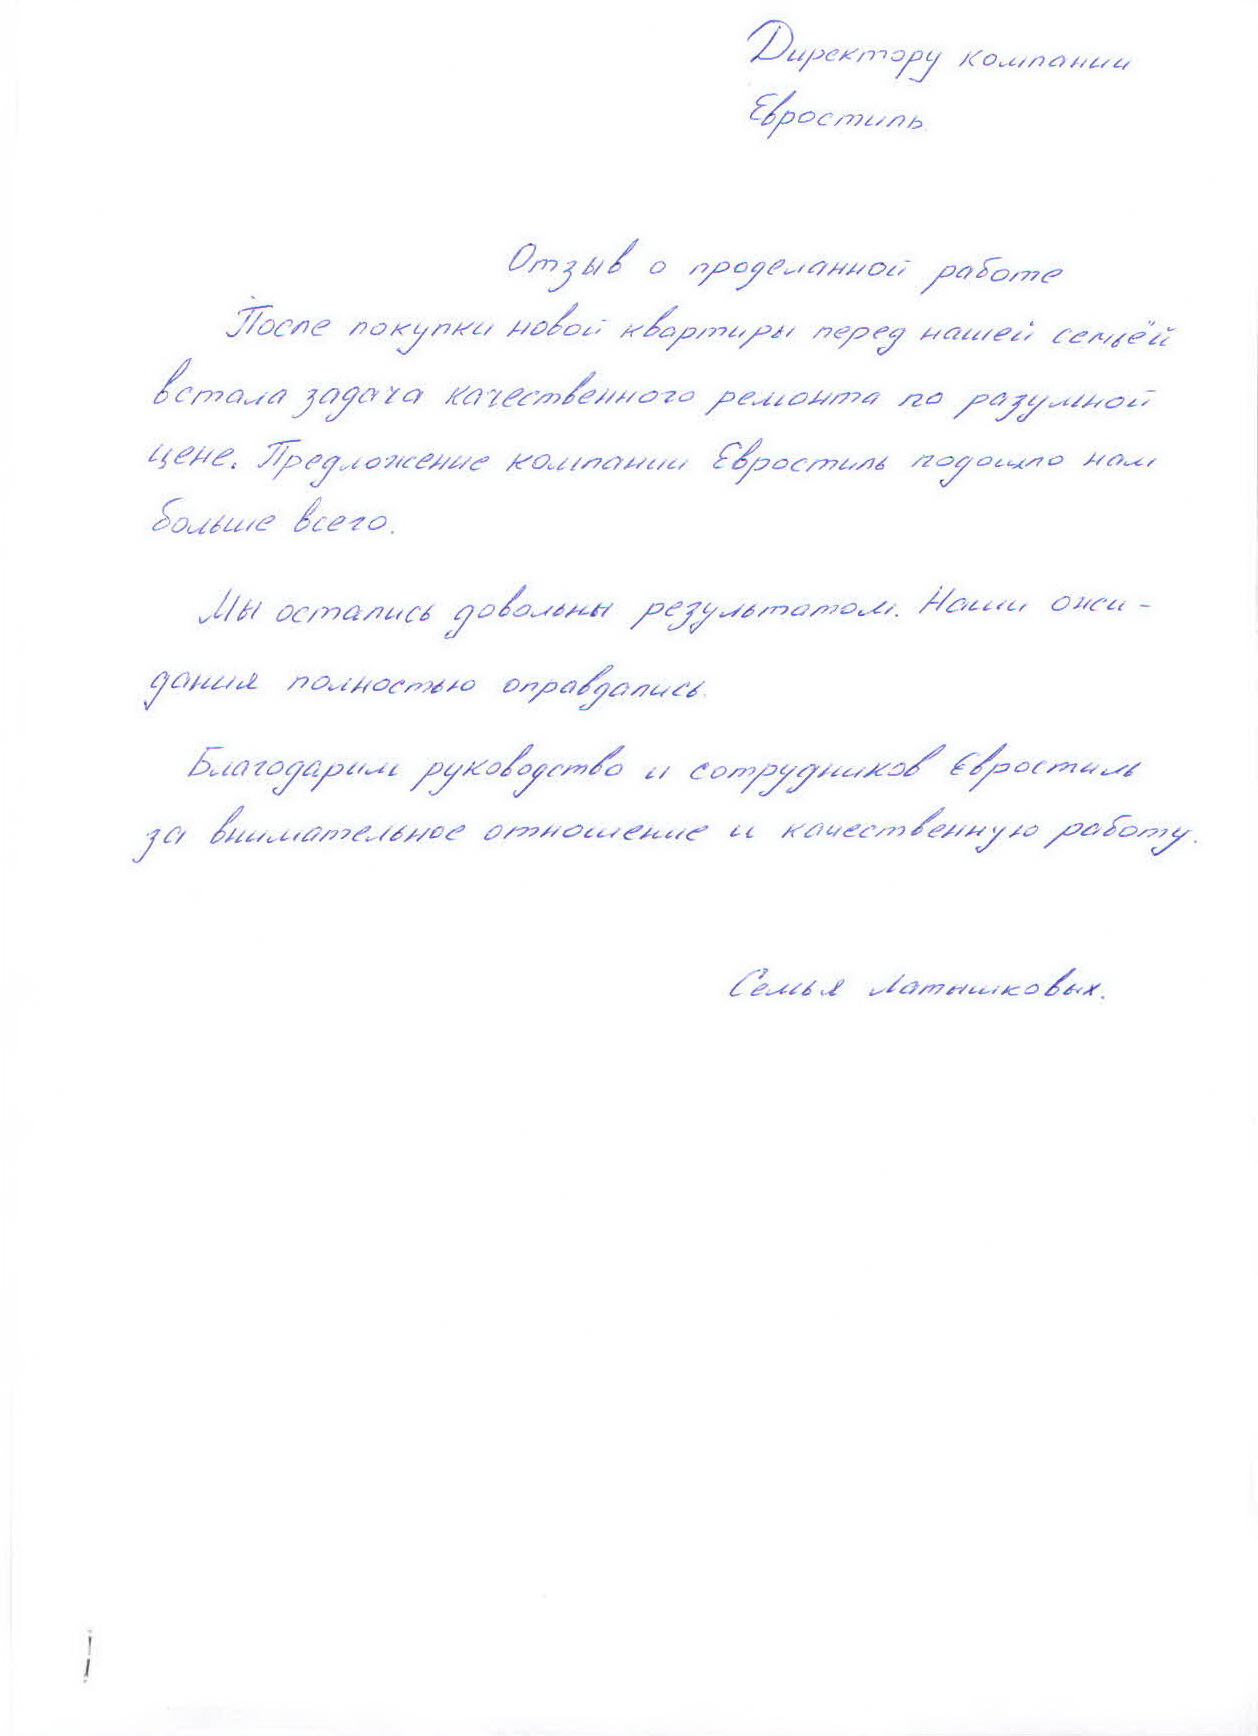 Директору компании
Евростиль.
Отзыв о проделанной работе
После покупки новой квартиры перед нашей семьёй
встала задача качественного ремонта по разумной
цене. Предложение компании Евростиль подошло нам
больше всего.
Мы остались довольны результатом. Наши ожи-
дания полностью оправдались.
Благодарим руководство и сотрудников Евростиль
за внимательное отношение и качественную работу.
Семья Латышковых.